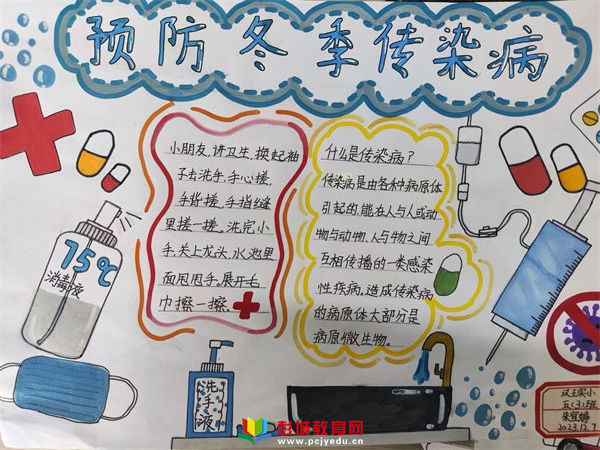 预防冬季传染病
小朋友,讲卫生,换起袖
子去洗手,手心搓,
手背搓,手指缝
里搓一搓。洗完小
手,关上龙头,水池里
面甩甩手。展开毛
巾擦一擦。
什么是传染病?
传染病是由各种病原体
引起的,能在人与人或动
物与动物,人与物之间
互相传播的一类感染
性疾病。造成传染病
的病原体大部分是
病原微生物。
75℃
消毒液
洗手液
双王实小
五(3)班
朱宜婷
2023.12.7
www.pcjyedu.cn